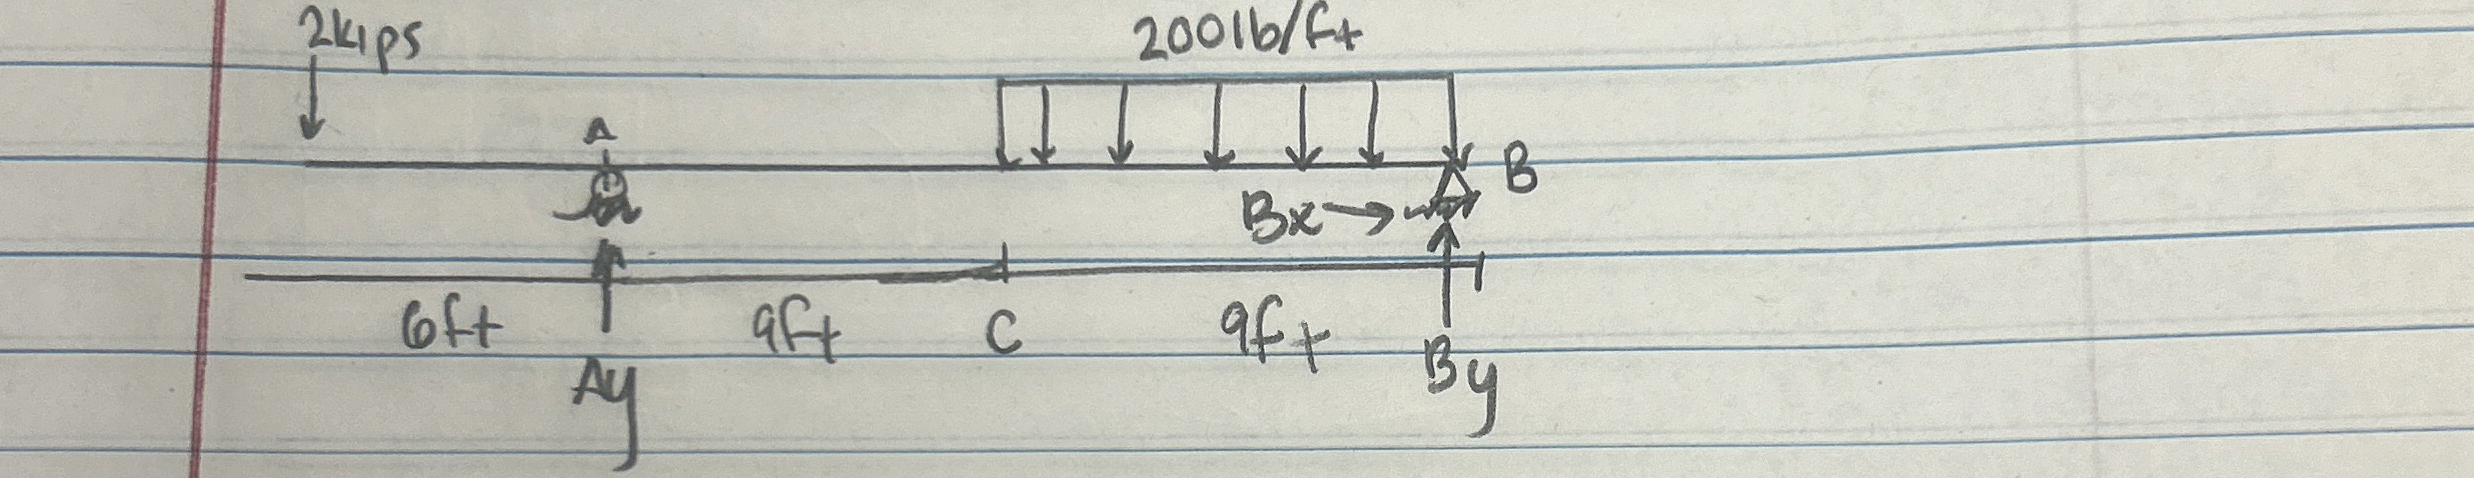 2kips
200lb/ft
A
B
Bx
6ft
9ft
C
9ft
Ay
By